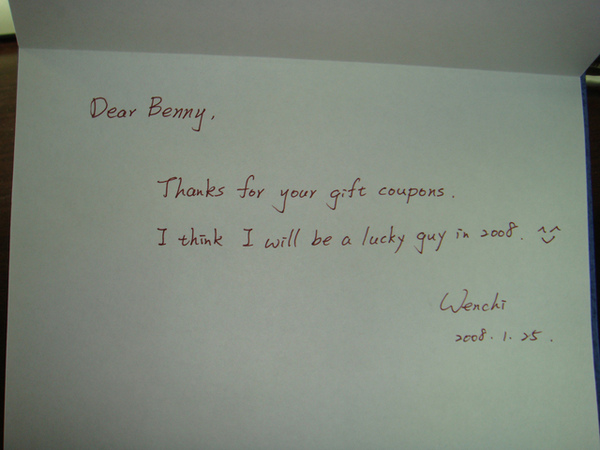 Dear Benny,
Thanks for your gift coupons.
I think I will be a lucky guy in 2008. ^^
Wenchi
2008. 1. 25.